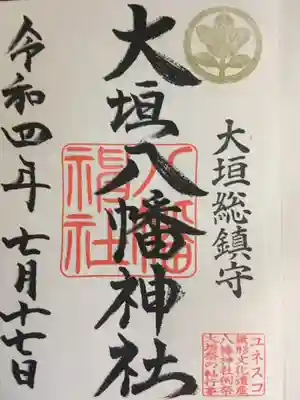 大垣総鎮守
大垣八幡神社
八幡
神社
令和四年七月十七日
ユネスコ
無形文化遺産
八幡神社例祭
大垣祭の軕行事